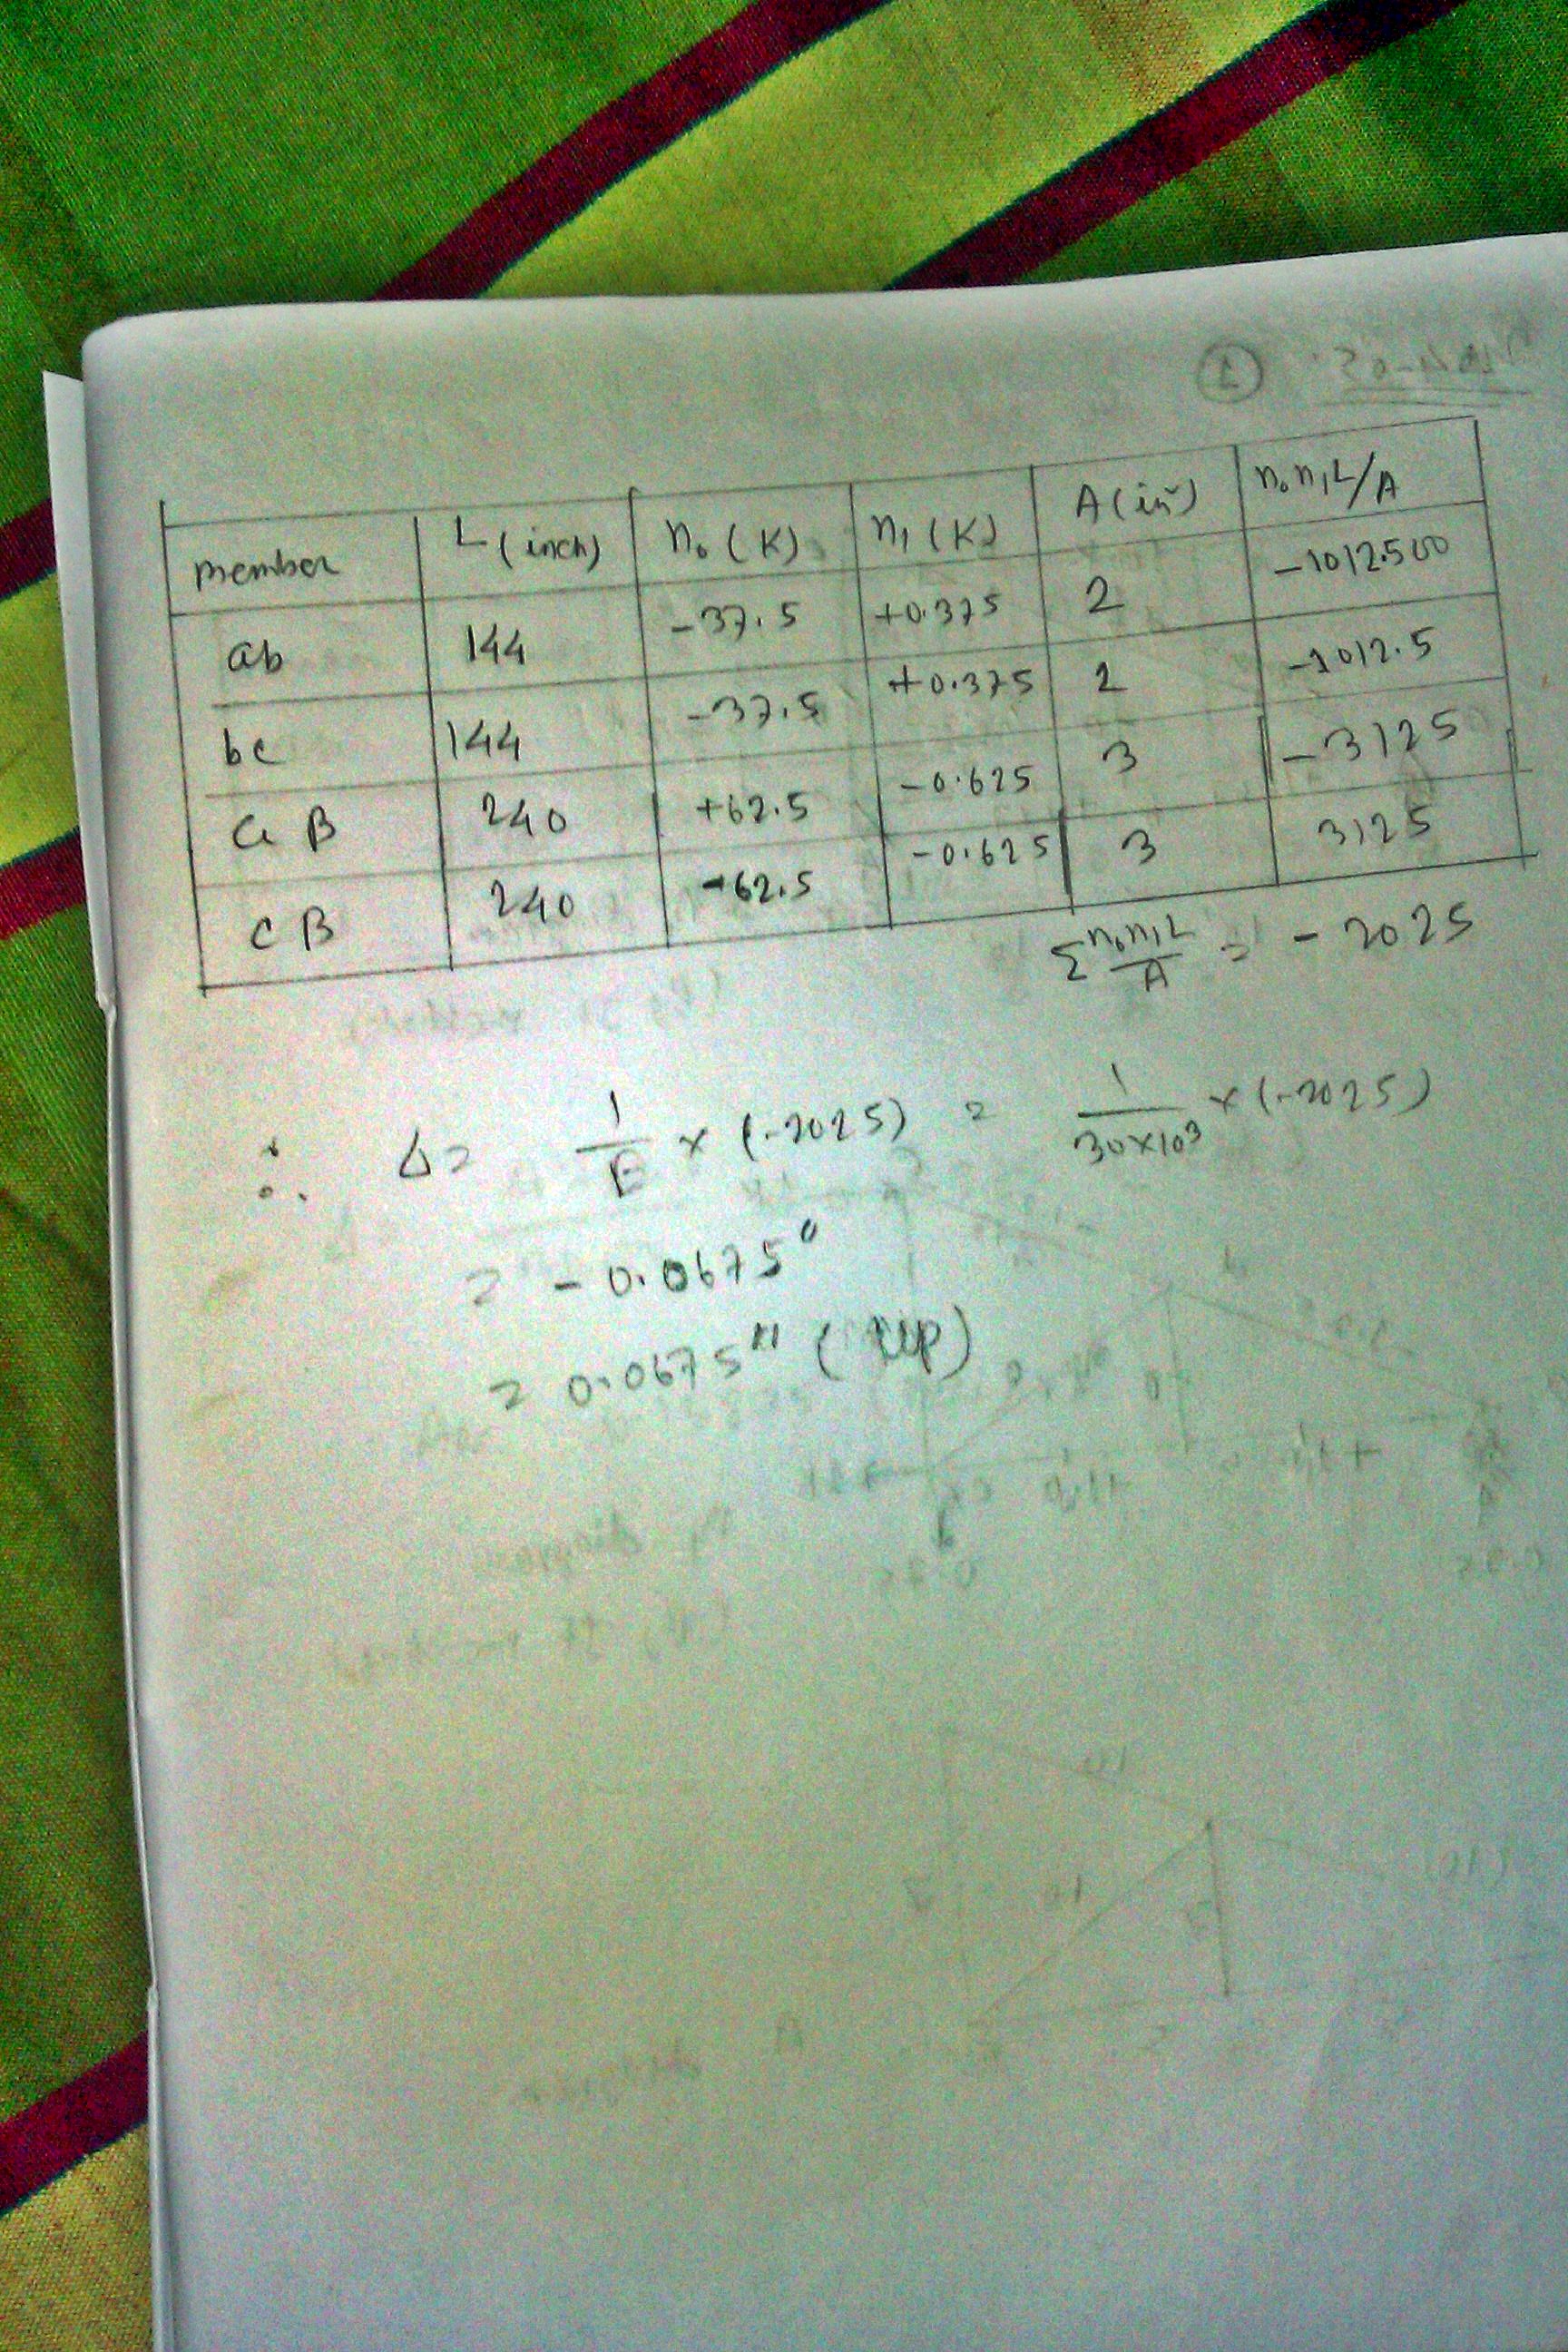 member L (inch) n₀ (K) n₁ (K) A (in²) n₀n₁L/A
ab 144 -37.5 +0.375 2 -1012.500
bc 144 -37.5 +0.375 2 -1012.5
aB 240 +62.5 -0.625 3 -3125
cB 240 -62.5 -0.625 3 3125
Σ n₀n₁L/A = - 2025
∴ Δ = 1/E × (-2025) = 1/30×10³ × (-2025)
= - 0.0675"
= 0.0675" (up)